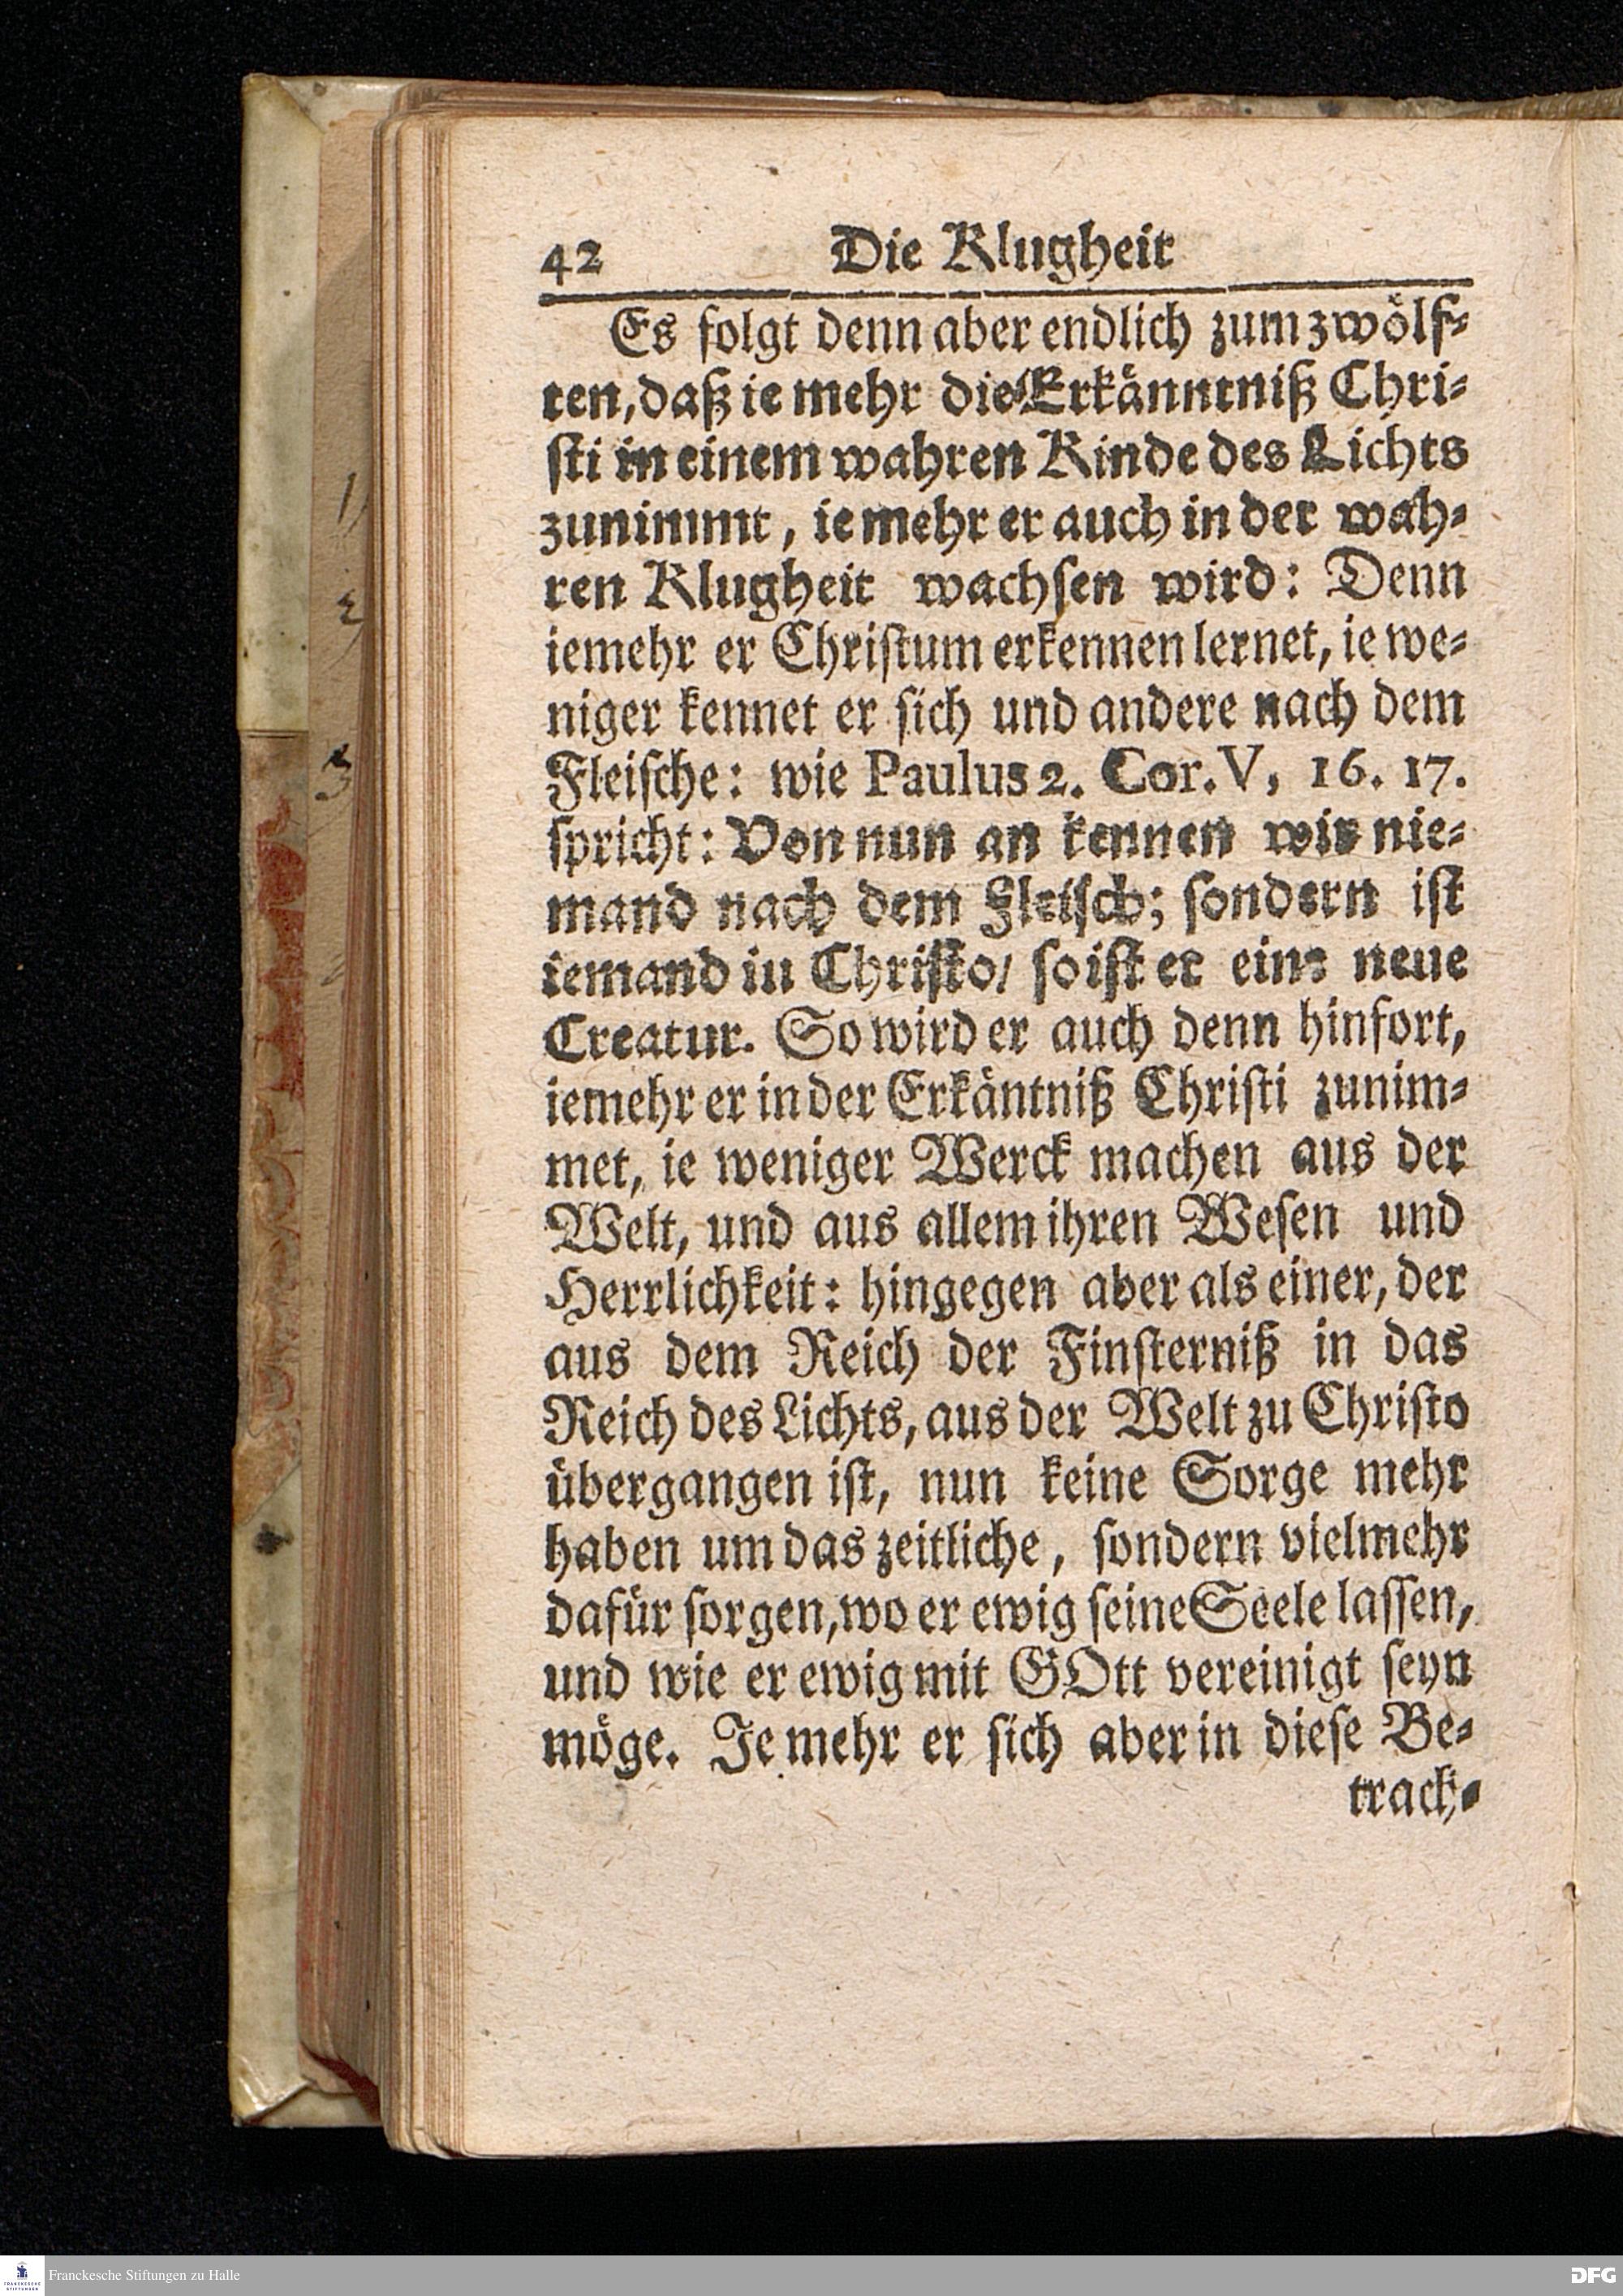 42 Die Klugheit
Es folgt denn aber endlich zum zwölf-
ten, daß ie mehr die Erkänntniß Chri-
sti in einem wahren Kinde des Lichts
zunimmt, ie mehr er auch in der wah-
ren Klugheit wachsen wird: Denn
iemehr er Christum erkennen lernet, ie we-
niger kennet er sich und andere nach dem
Fleische: wie Paulus 2. Cor. V, 16. 17.
spricht: Von nun an kennen wir nie-
mand nach dem Fleisch; sondern ist
iemand in Christo/ so ist er eine neue
Creatur. So wird er auch denn hinfort,
iemehr er in der Erkäntniß Christi zunim-
met, ie weniger Werck machen aus der
Welt, und aus allem ihren Wesen und
Herrlichkeit: hingegen aber als einer, der
aus dem Reich der Finsterniß in das
Reich des Lichts, aus der Welt zu Christo
übergangen ist, nun keine Sorge mehr
haben um das zeitliche, sondern vielmehr
dafür sorgen, wo er ewig seine Seele lassen,
und wie er ewig mit GOtt vereinigt seyn
möge. Je mehr er sich aber in diese Be-
trach-
Franckesche Stiftungen zu Halle
DFG